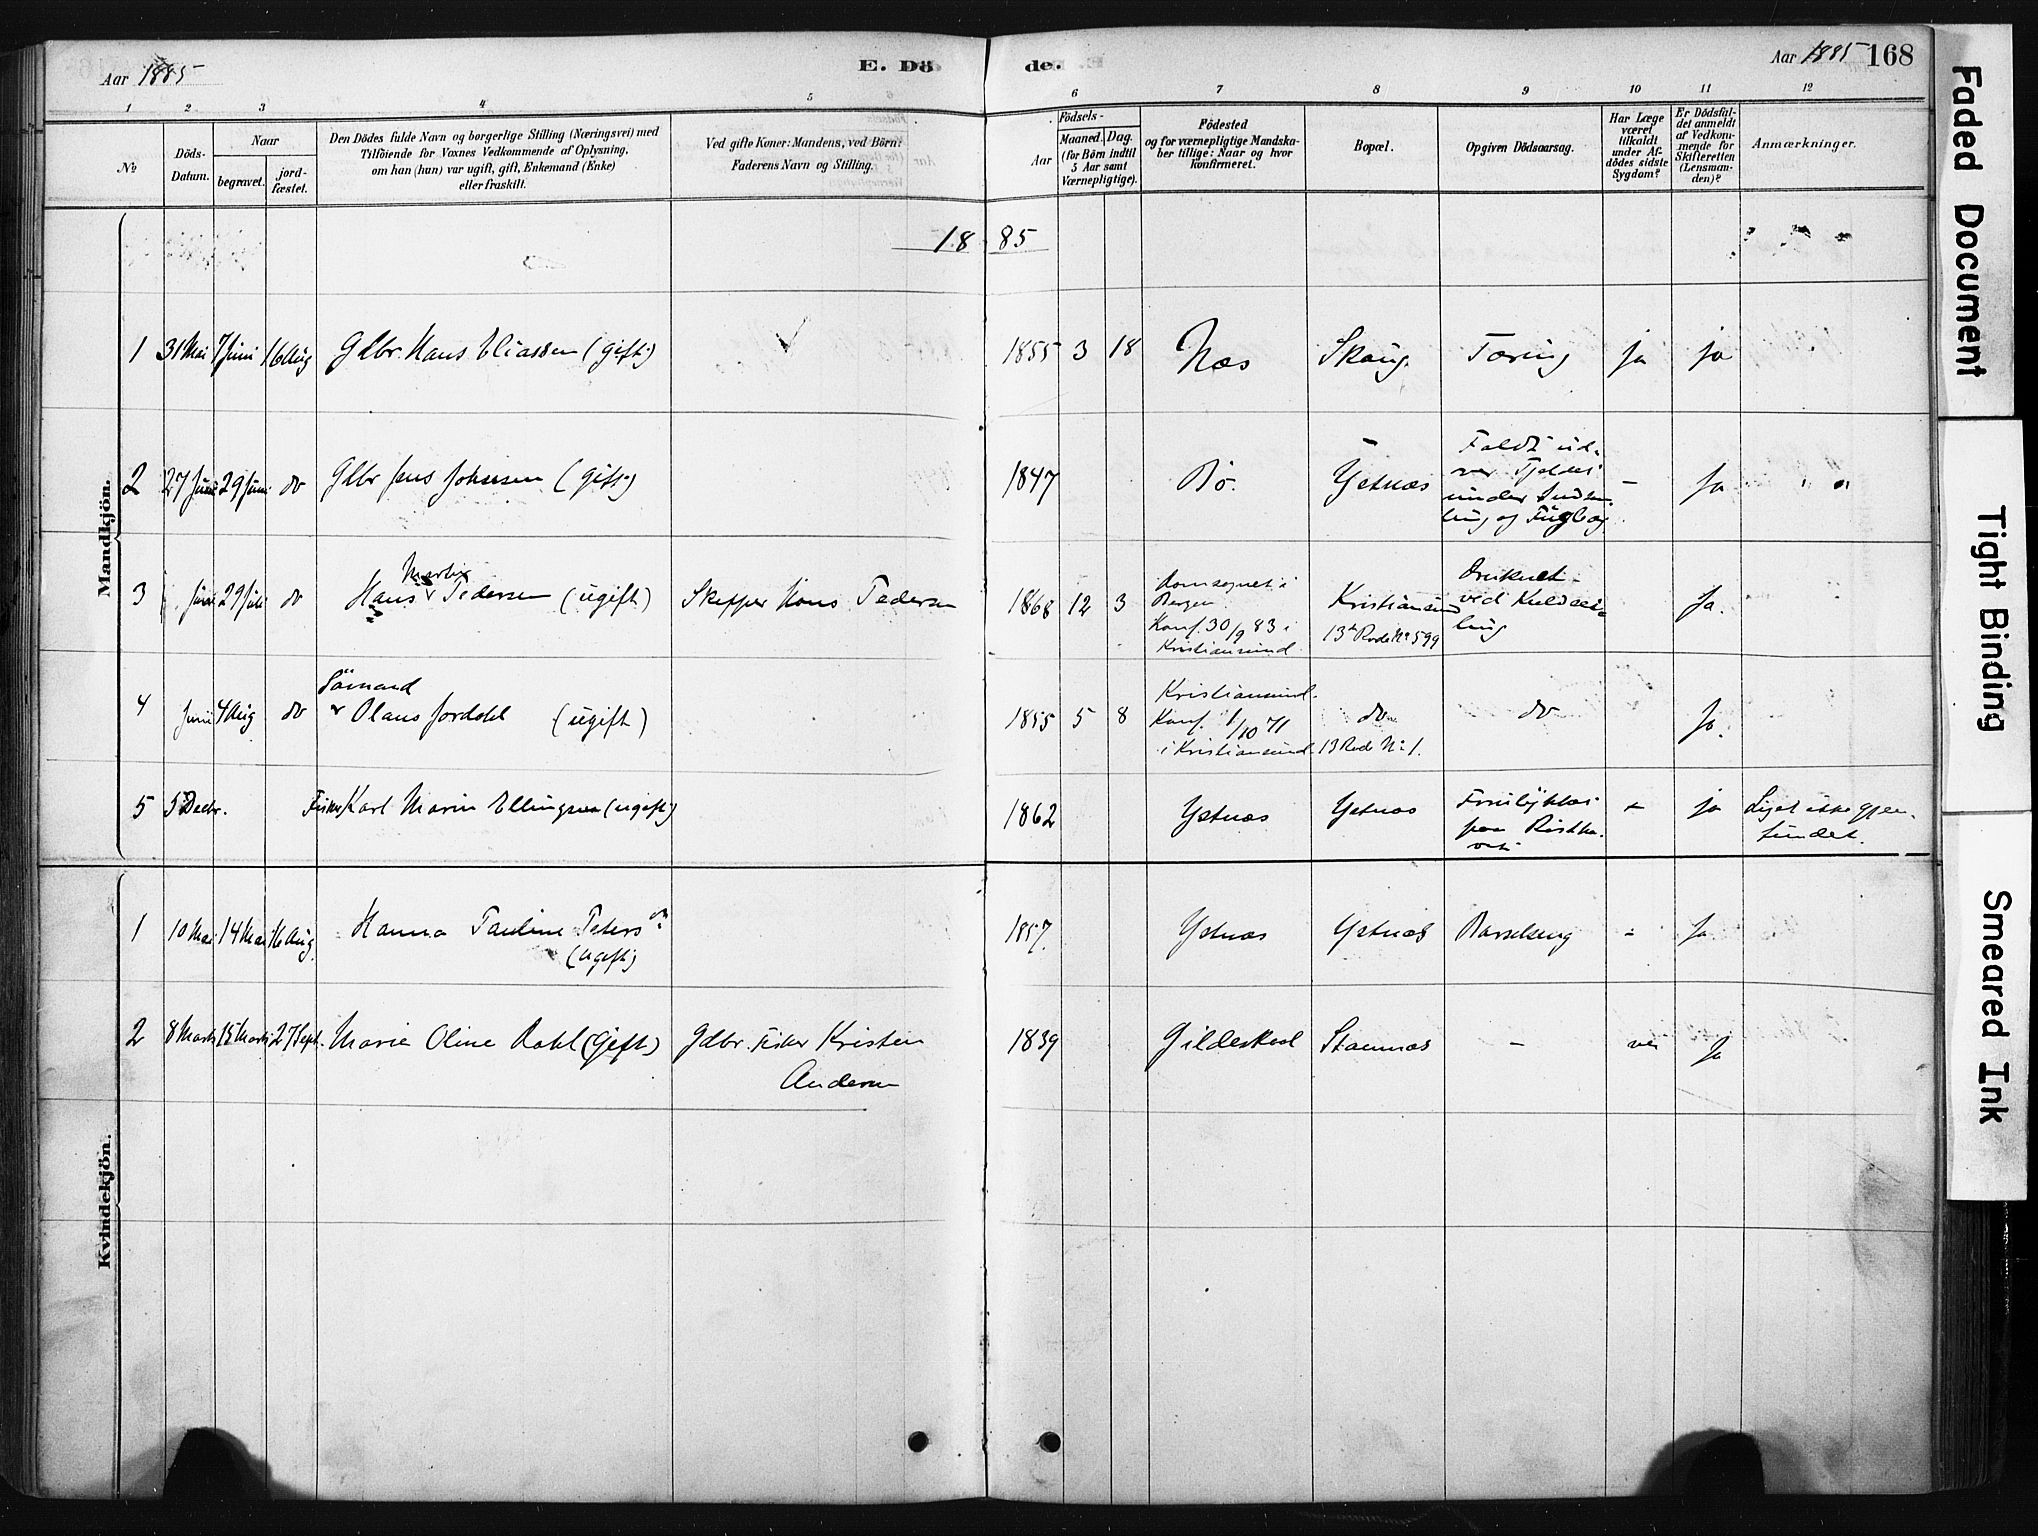 Aar 1885
E. Dö
de.
Aar 1885
168
1 2 3 4 5 6 7 8 9 10 11 12
No
Döds-
Datum.
Naar
begravet.
jord-
fæstet.
Den Dödes fulde Navn og borgerlige Stilling (Næringsvei) med
Tilföiende for Voxnes Vedkommende af Oplysning,
om han (hun) var ugift, gift, Enkemand (Enke)
eller fraskilt.
Ved gifte Koner: Mandens, ved Börn:
Faderens Navn og Stilling.
Födsels-
Aar
Maaned.
Dag.
(for Börn indtil
5 Aar samt
Værnepligtige).
Födested
og for værnepligtige Mandska-
ber tillige: Naar og hvor
konfirmeret.
Bopæl.
Opgiven Dödsaarsag.
Har Læge
været
tilkaldt
under Af-
dödes sidste
Sygdom?
Er Dödsfal-
det anmeldt
af Vedkom-
mende for
Skifteretten
(Lensman-
den)?
Anmærkninger.
18 85
Mandkjön.
1 31 Mai 7 Juni 16 Aug Gdbr. Hans Eliassen (gift) 1855 3 18 Næs Skaug. Tæring ja ja
2 27 Juni 29 Juni do Gdbr Jens Johnsen (gift) 1847 Bö. Ystnæs
Faldt ud-
under
og
- Ja
3 29 Juli do Hans Martin Pedersen (ugift) Skipper Hans Pedersen 1868 12 3
Domsognet i
Bergen
Konf. 30/9 83 i
Kristiansund
Kristiansund
13de Rode No 599
Druknet
ved Kuldseil-
ing
Ja.
4 Juni 4 Aug do
Sömand
Olaus Jordahl (ugift) 1855 5 8
Kristiansund.
Konf. 1/10 71
i Kristiansund
do
13 Rode No 1.
do
Ja.
5 5 Decbr. Fisker Karl Marin Ellingsen (ugift) 1862 Ystnæs Ystnæs
Forulykket
paa
- ja
Liget ikke gjen-
fundet.
Kvindekjön.
1 10 Mai 14 Mai 16 Aug. Hanna Pauline Petersen
(ugift)
1857 Ystnæs Ystnæs Barselseng - Ja
2 8 Marts 15 Marts 27 Sept. Marie Oline Dahl (Gift) Gdbr. Fisker Kristen
Andersen
1839 Gildeskaal Stavnæs - Ja
Faded Document
Tight Binding
Smeared Ink